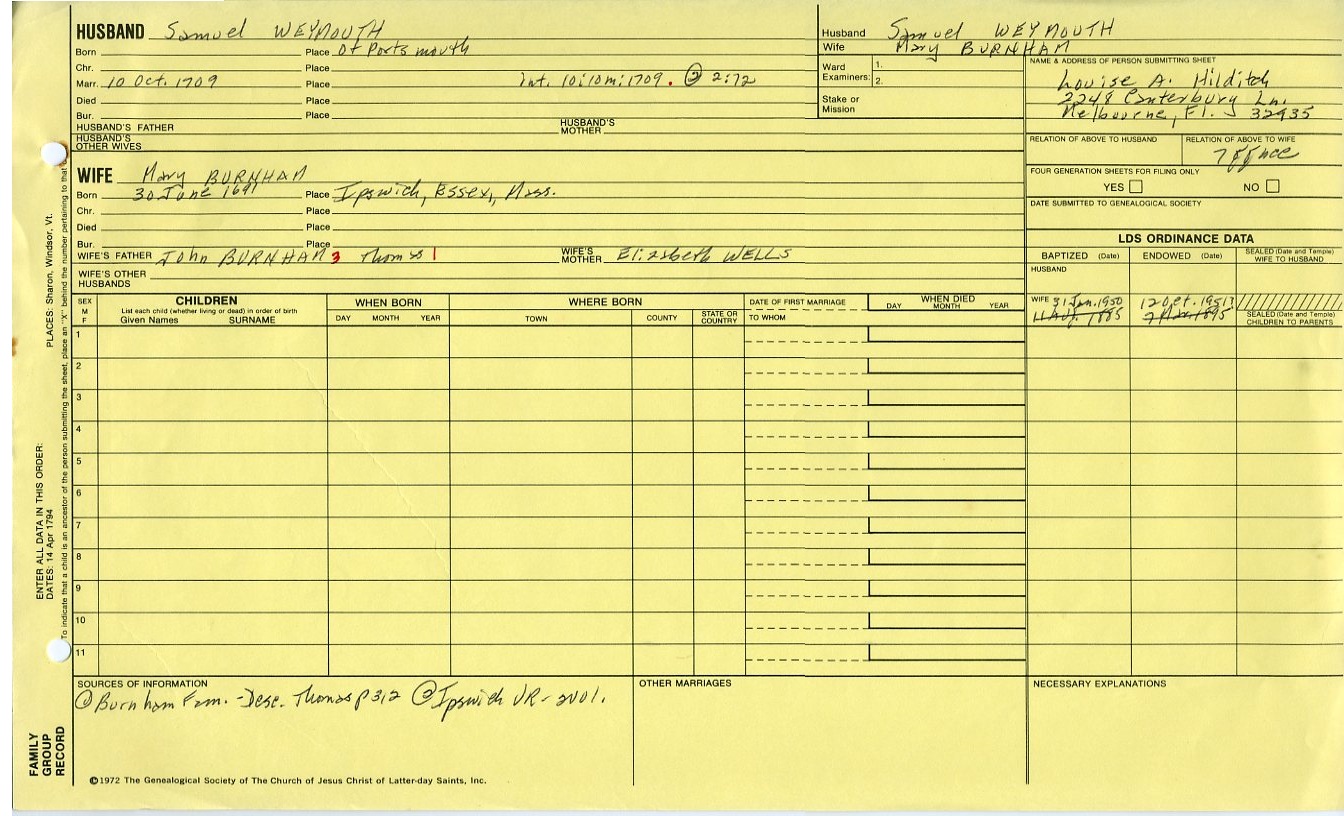 HUSBAND Samuel WEYMOUTH
Born Place Of Portsmouth
Chr. Place
Marr. 10 Oct. 1709 Place Int. 10:10m:1709. ② 2:72
Died Place
Bur. Place
HUSBAND'S FATHER HUSBAND'S MOTHER
HUSBAND'S OTHER WIVES
WIFE Mary BURNHAM
Born 30 June 1691 Place Ipswich, Essex, Mass.
Chr. Place
Died Place
Bur. Place
WIFE'S FATHER John BURNHAM 3 Thomas 1 WIFE'S MOTHER Elizabeth WELLS
WIFE'S OTHER HUSBANDS
Husband Samuel WEYMOUTH
Wife Mary BURNHAM
Ward Examiners: 1.
2.
Stake or Mission
NAME & ADDRESS OF PERSON SUBMITTING SHEET
Louise A. Hilditch
2248 Canterbury Ln.
Melbourne, Fl. 32935
RELATION OF ABOVE TO HUSBAND RELATION OF ABOVE TO WIFE
FOUR GENERATION SHEETS FOR FILING ONLY
YES NO
DATE SUBMITTED TO GENEALOGICAL SOCIETY
LDS ORDINANCE DATA
BAPTIZED (Date) ENDOWED (Date) SEALED (Date and Temple) WIFE TO HUSBAND
HUSBAND
WIFE 31 Jan. 1950 12 Oct. 1951
11 Aug. 1885 1895 SEALED (Date and Temple) CHILDREN TO PARENTS
SEX M F
CHILDREN
List each child (whether living or dead) in order of birth
Given Names SURNAME
WHEN BORN
DAY MONTH YEAR
WHERE BORN
TOWN COUNTY STATE OR COUNTRY
DATE OF FIRST MARRIAGE
TO WHOM
WHEN DIED
DAY MONTH YEAR
1
2
3
4
5
6
7
8
9
10
11
SOURCES OF INFORMATION
① Burnham Fam. - Desc. Thomas p 312 ② Ipswich VR - 2001.
OTHER MARRIAGES
NECESSARY EXPLANATIONS
©1972 The Genealogical Society of The Church of Jesus Christ of Latter-day Saints, Inc.
FAMILY GROUP RECORD
ENTER ALL DATA IN THIS ORDER:
DATES: 14 Apr 1794 PLACES: Sharon, Windsor, Vt.
To indicate that a child is an ancestor of the person submitting the sheet, place an "X" behind the number pertaining to that